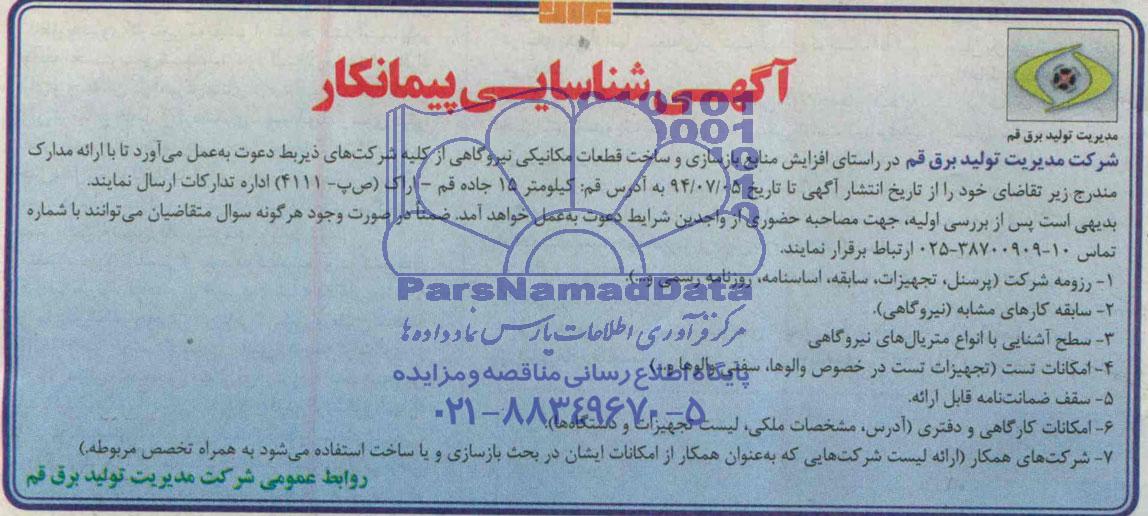 آگهی شناسایی پیمانکار
مدیریت تولید برق قم
شرکت مدیریت تولید برق قم در راستای افزایش منابع بازسازی و ساخت قطعات مکانیکی نیروگاهی از کلیه شرکت‌های ذیربط دعوت به‌عمل می‌آورد تا با ارائه مدارک
مندرج زیر تقاضای خود را از تاریخ انتشار آگهی تا تاریخ ۹۴/۰۷/۰۵ به آدرس قم: کیلومتر ۱۵ جاده قم – اراک (ص‌پ- ۴۱۱۱) اداره تدارکات ارسال نمایند.
بدیهی است پس از بررسی اولیه، جهت مصاحبه حضوری از واجدین شرایط دعوت به‌عمل خواهد آمد. ضمناً در صورت وجود هرگونه سوال متقاضیان می‌توانند با شماره
تماس ۱۰-۳۸۷۰۰۹۰۹-۰۲۵ ارتباط برقرار نمایند.
۱- رزومه شرکت (پرسنل، تجهیزات، سابقه، اساسنامه، روزنامه رسمی و...).
ParsNamadData
۲- سابقه کارهای مشابه (نیروگاهی).
مرکز فرآوری اطلاعات پارس نماد داده ها
۳- سطح آشنایی با انواع متریال‌های نیروگاهی
۴- امکانات تست (تجهیزات تست در خصوص والوها، سفتی والوها و...)
پایگاه اطلاع رسانی مناقصه و مزایده
۵- سقف ضمانت‌نامه قابل ارائه.
۰۲۱-۸۸۳۴۹۶۷۰-۵
۶- امکانات کارگاهی و دفتری (آدرس، مشخصات ملکی، لیست تجهیزات و دستگاه‌ها).
۷- شرکت‌های همکار (ارائه لیست شرکت‌هایی که به‌عنوان همکار از امکانات ایشان در بحث بازسازی و یا ساخت استفاده می‌شود به همراه تخصص مربوطه.)
روابط عمومی شرکت مدیریت تولید برق قم